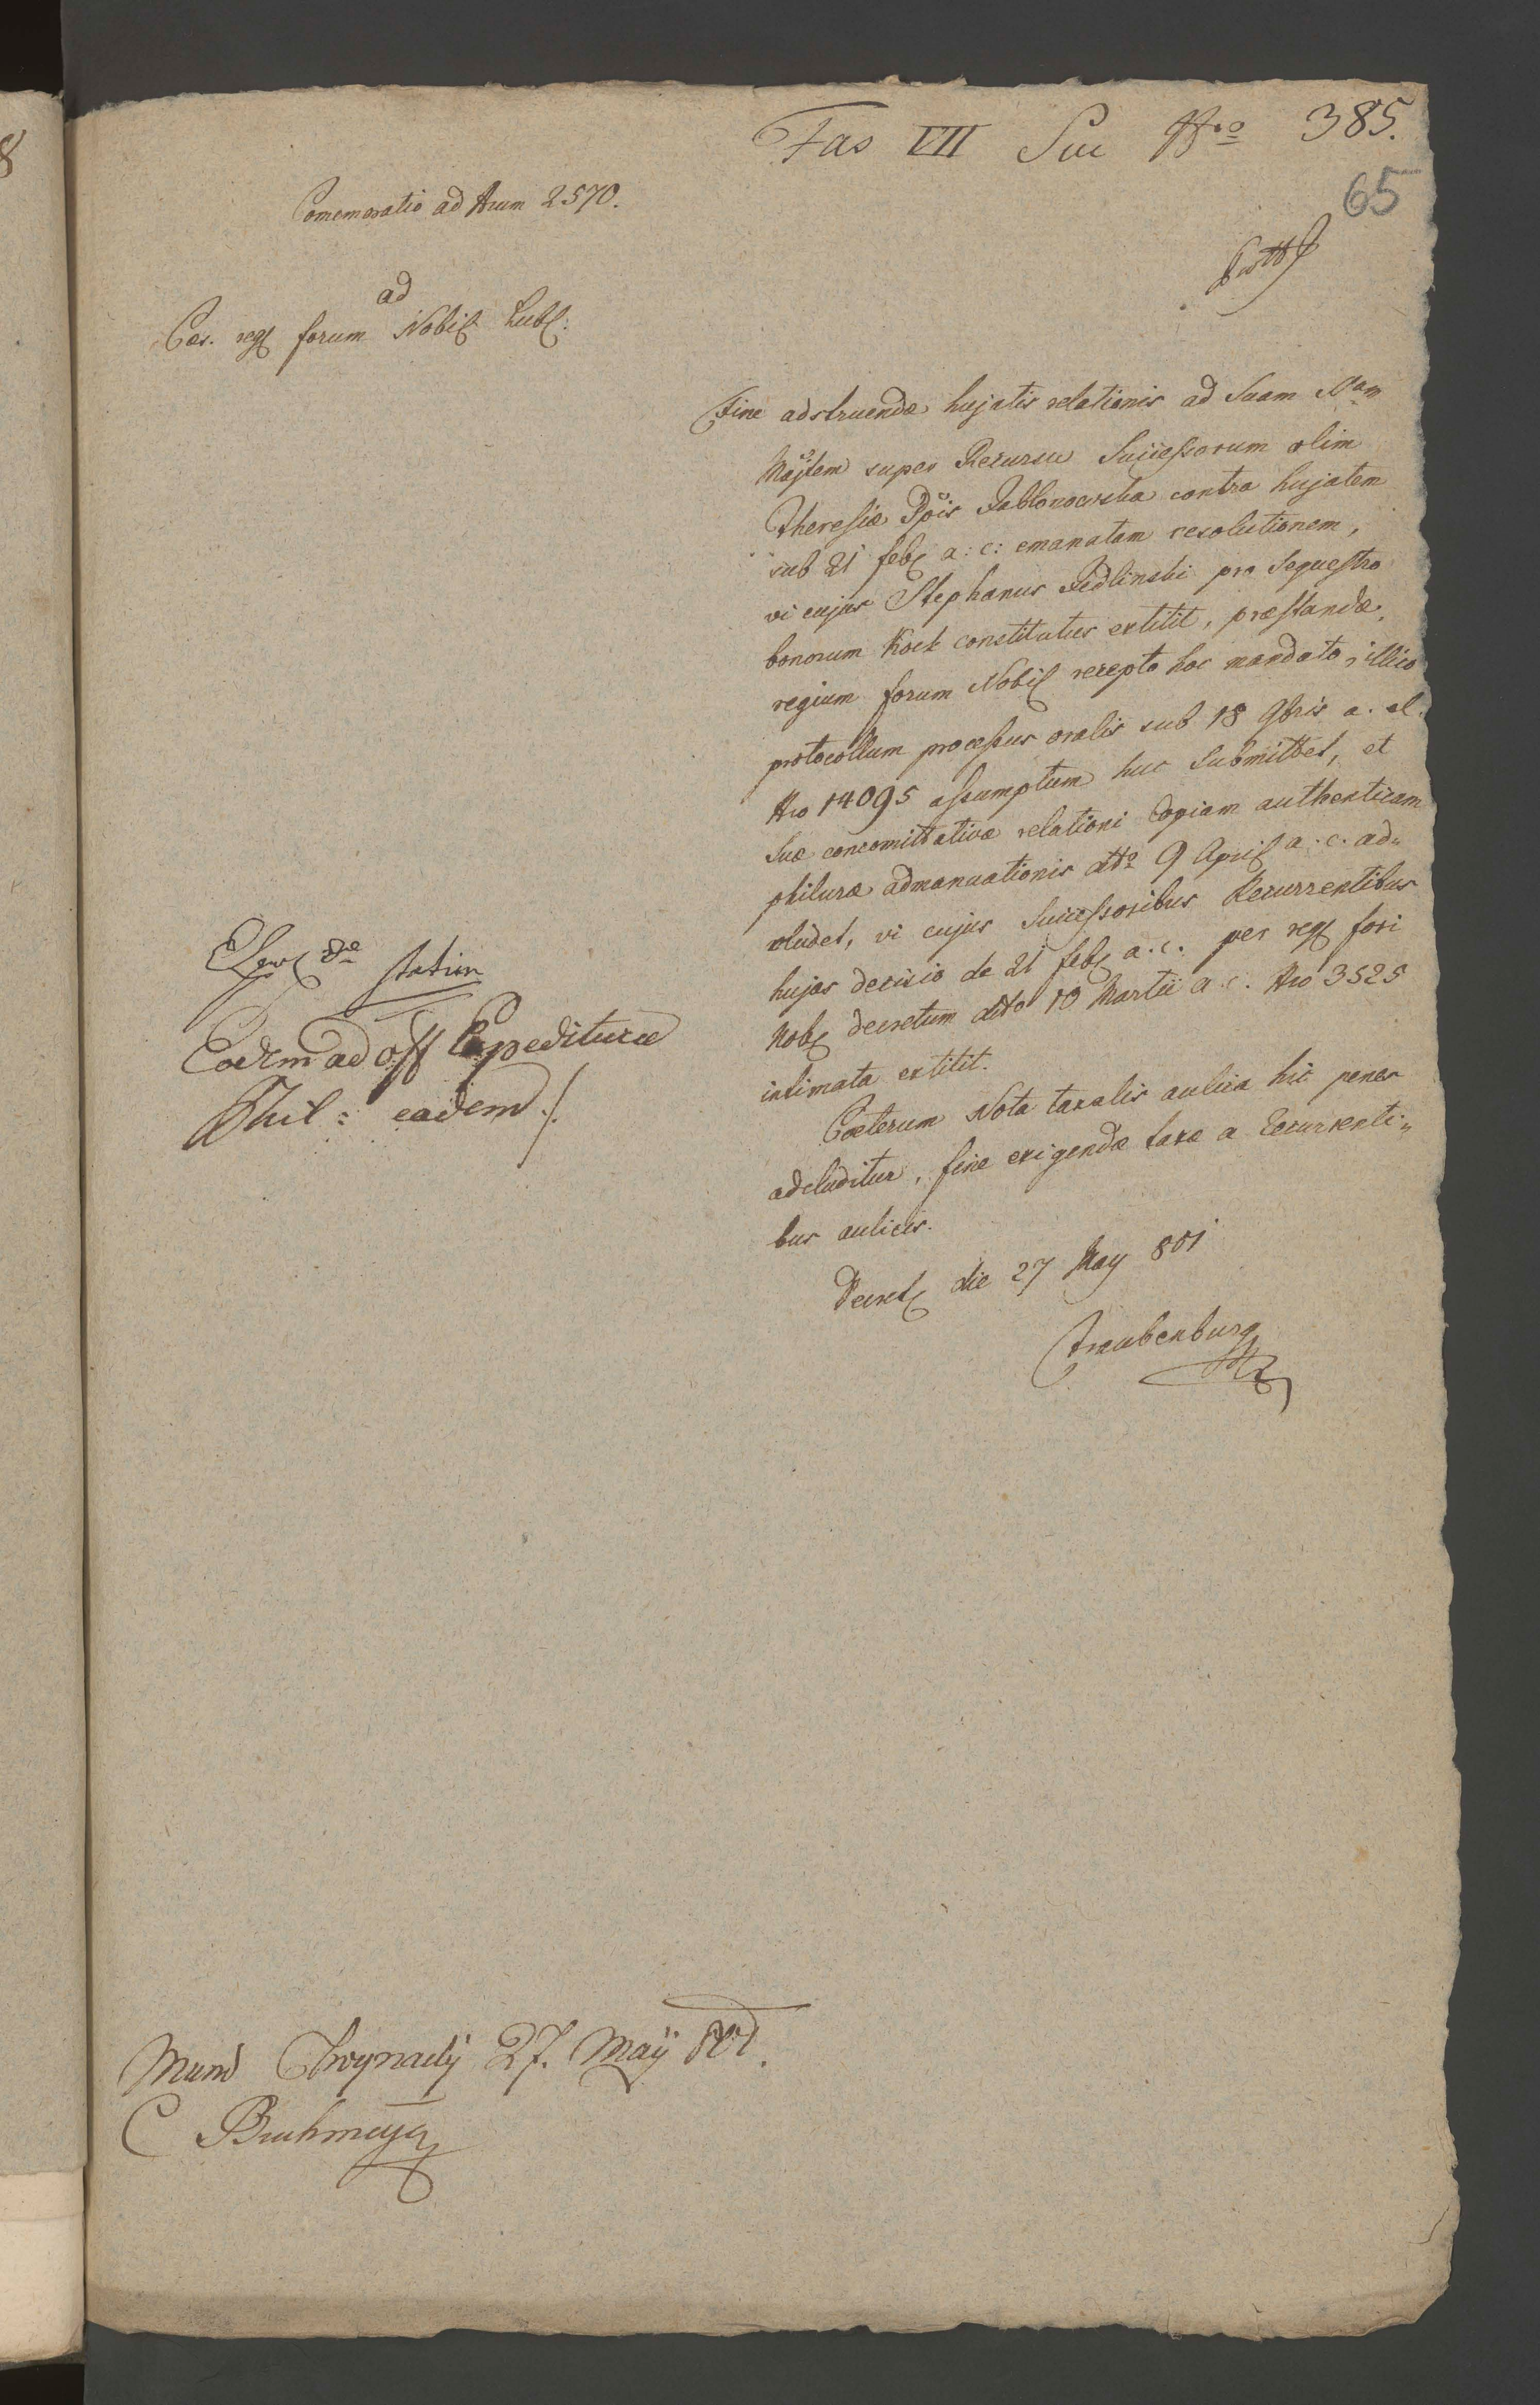 Fas VII Suc Nro 385.
65
Comemoratio ad Nrum 2570.
ad
Caes. reg forum Nobil Lubl:
Fine adstruendae hujatis relationis ad Suam Mam
Majtem super Recursu Successorum olim
Theresiae Ppis Jablonowska contra hujatem
sub 21 feb a: c: emanatam resolutionem,
vi cujus Stephanus Jedlinski pro Sequestro
bonorum Kock constitutus extitit, praestandae,
regium forum Nobil recepto hoc mandato, illico
protocollum processus oralis sub 18 9bris a. el.
Nro 14095 assumptum huc Submittet, et
Suae concomittativae relationi Copiam authenticam
philurae admanuationis dtto 9 April a. c. ad„
cludet, vi cujus Successoribus Recurrentibus
hujas decisio de 21 feb a. c. per reg fori
Nob decretum ddto 10 Martii a. c. Nro 3525
intimata extitit.
Caeterum Nota taxalis aulica hic penes
adcluditur, fine exigendae taxae a Recurrenti„
bus aulicis.
Decret die 27 May 801
Traubenburg
statim
Eodem ad off Expediturae
Phil: eadem ./.
Mund Chwynacky 27. Maÿ 801.
C Bruhmeyer